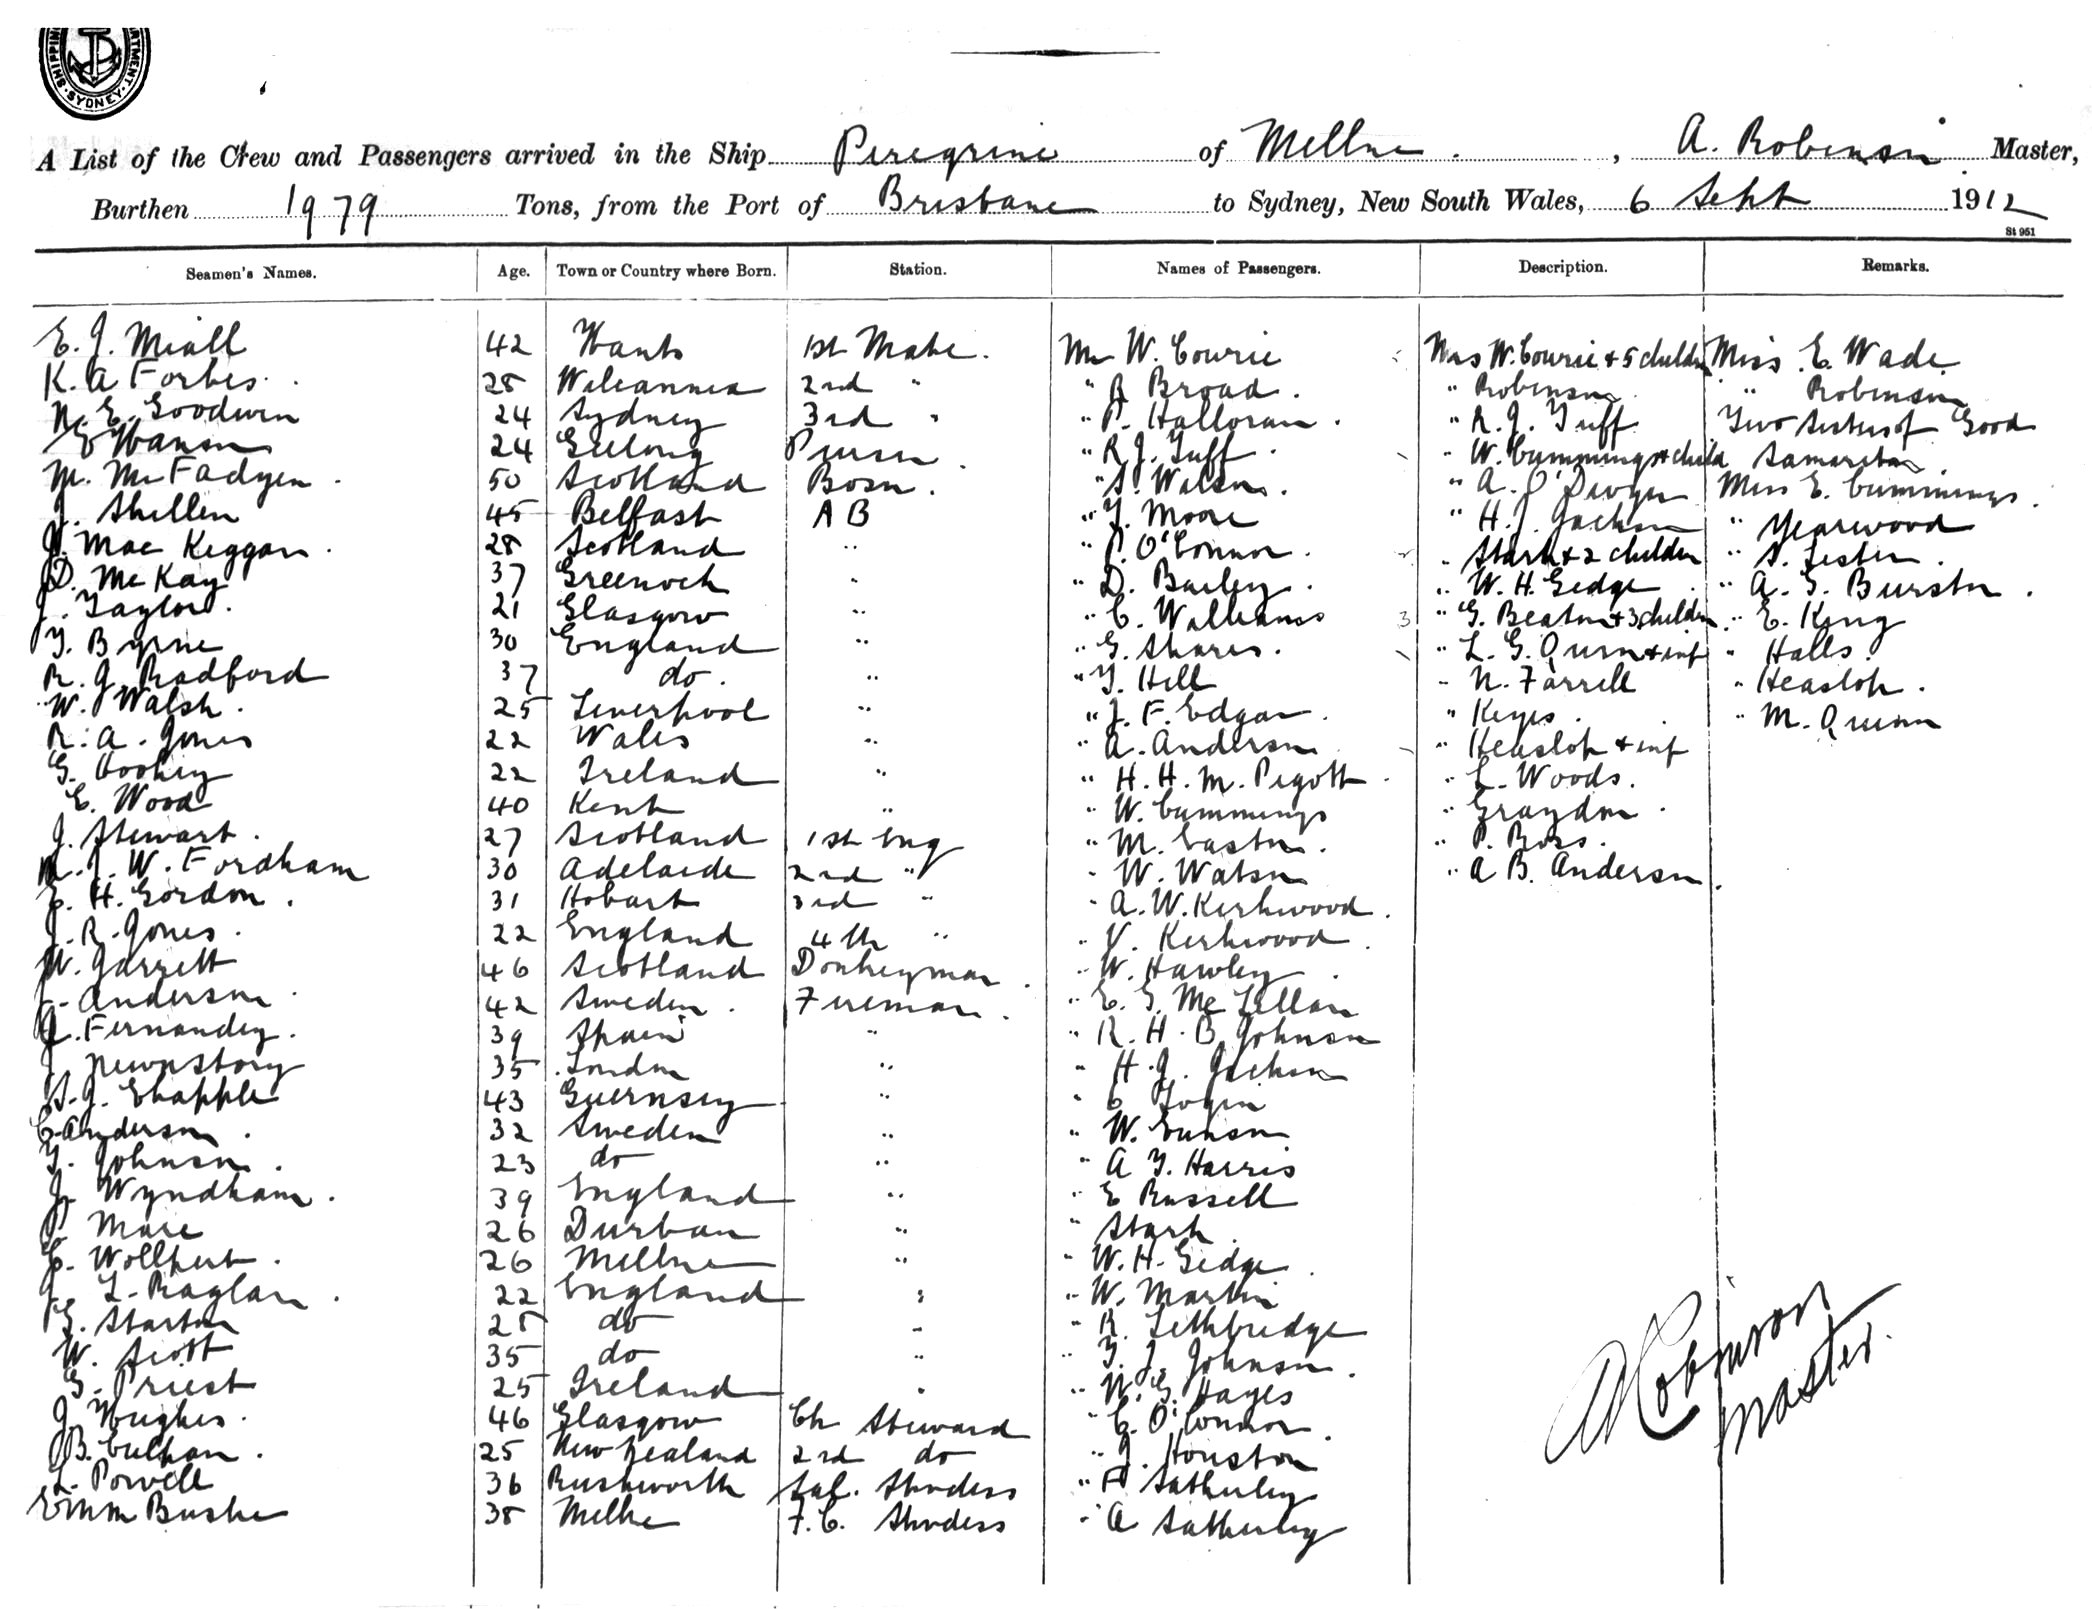 SHIPPING DEPARTMENT SYDNEY
A List of the Crew and Passengers arrived in the Ship Peregrine of Mellne. , A. Robinson Master,
Burthen 1979 Tons, from the Port of Brisbane to Sydney, New South Wales, 6 Sept 1912
St 951
Seamen's Names. Age. Town or Country where Born. Station. Names of Passengers. Description. Remarks.
E. J. Miall 42 Hants 1st Mate. Mr W. Cowrie Mrs W. Cowrie & 5 childn Miss E. Wade
K. A Forbes. 28 Wilcannia 2nd " " R Broad. " Robinson " Robinson
N. E. Goodwin 24 Sydney 3rd " " P. Halloran. " R. J. Tuff Two Sisters of Good
E Hanson 24 Geelong Purser. " R. J. Tuff. " W. Cummings & child Samaritan.
M. McFadyen. 50 Scotland Bosn. " S. Watson. " A. O'Dwyer Miss E. Cummings.
J. Skillen 45 Belfast A B " T. Moore " H. J. Jackson " Yearwood
J. Mac Keggan. 28 Scotland " " P. O'Connor. " Stark & 2 childen " S. Lester.
D. McKay 37 Greenock " " D. Bailey. " W. H. Gedge. " A. G. Burston.
J. Taylor. 21 Glasgow " " C. Williams 3 " G. Beaton & 3 childn " E. King
T. Byrne 30 England " " G. Shares. " L. G. Quinn & inf " Halls.
R. J. Radford 37 do. " " T. Hill " N. Farrell " Heaslop.
W. Walsh. 25 Liverpool " " J. F. Edgar. " Keyes. " M. Quinn
R. A. Jones 22 Wales " " A. Anderson " Heaslop & inf
G. Hookey 22 Ireland " " H. H. M. Pigott " L. Woods.
E. Wood 40 Kent " " W. Cummings " Graydon.
J. Stewart. 27 Scotland 1st Eng " M. Easton. " P. Ross.
W. Fordham 30 Adelaide 2nd " " W. Watson " A B. Anderson.
E. H. Gordon. 31 Hobart 3rd " " A. W. Kirkwood.
J. R. Jones. 22 England 4th " " V. Kirkwood.
W. Garrett 46 Scotland Donkeyman. " W. Hawley.
J. Anderson. 42 Sweden. Fireman. " E. G. McLellan
J. Fernandez. 39 Spain " " R. H. B. Johnson
J. Newnstory 35 London " " H. J. Jackson
S. J. Chapple 43 Guernsey " " C Togin
C. Anderson. 32 Sweden " " W. Eunson
T. Johnson. 23 do " " A T. Harris
J. Wyndham. 39 England " " E Russell
P. Mare 26 Durban " " Stark.
C. Wollpert. 26 Mellne " " W. H. Gedge.
J. L. Raglan. 22 England " " W. Martin
G. Starton 28 do " " R. Lethbridge
W. Scott 35 do " " T. J. Johnson.
G. Priest 25 Ireland " " N. G. Hayes
J. Hughes. 46 Glasgow Ch Steward " C. O'Connor.
B. Culhan. 25 New Zealand 2nd do " J. Houston
L. Powell 36 Rushworth Sal. Stwdess " F Satherley
Emm Bushe 38 Mellne F. C. Stwdess " A Satherley
A Robinson
Master.